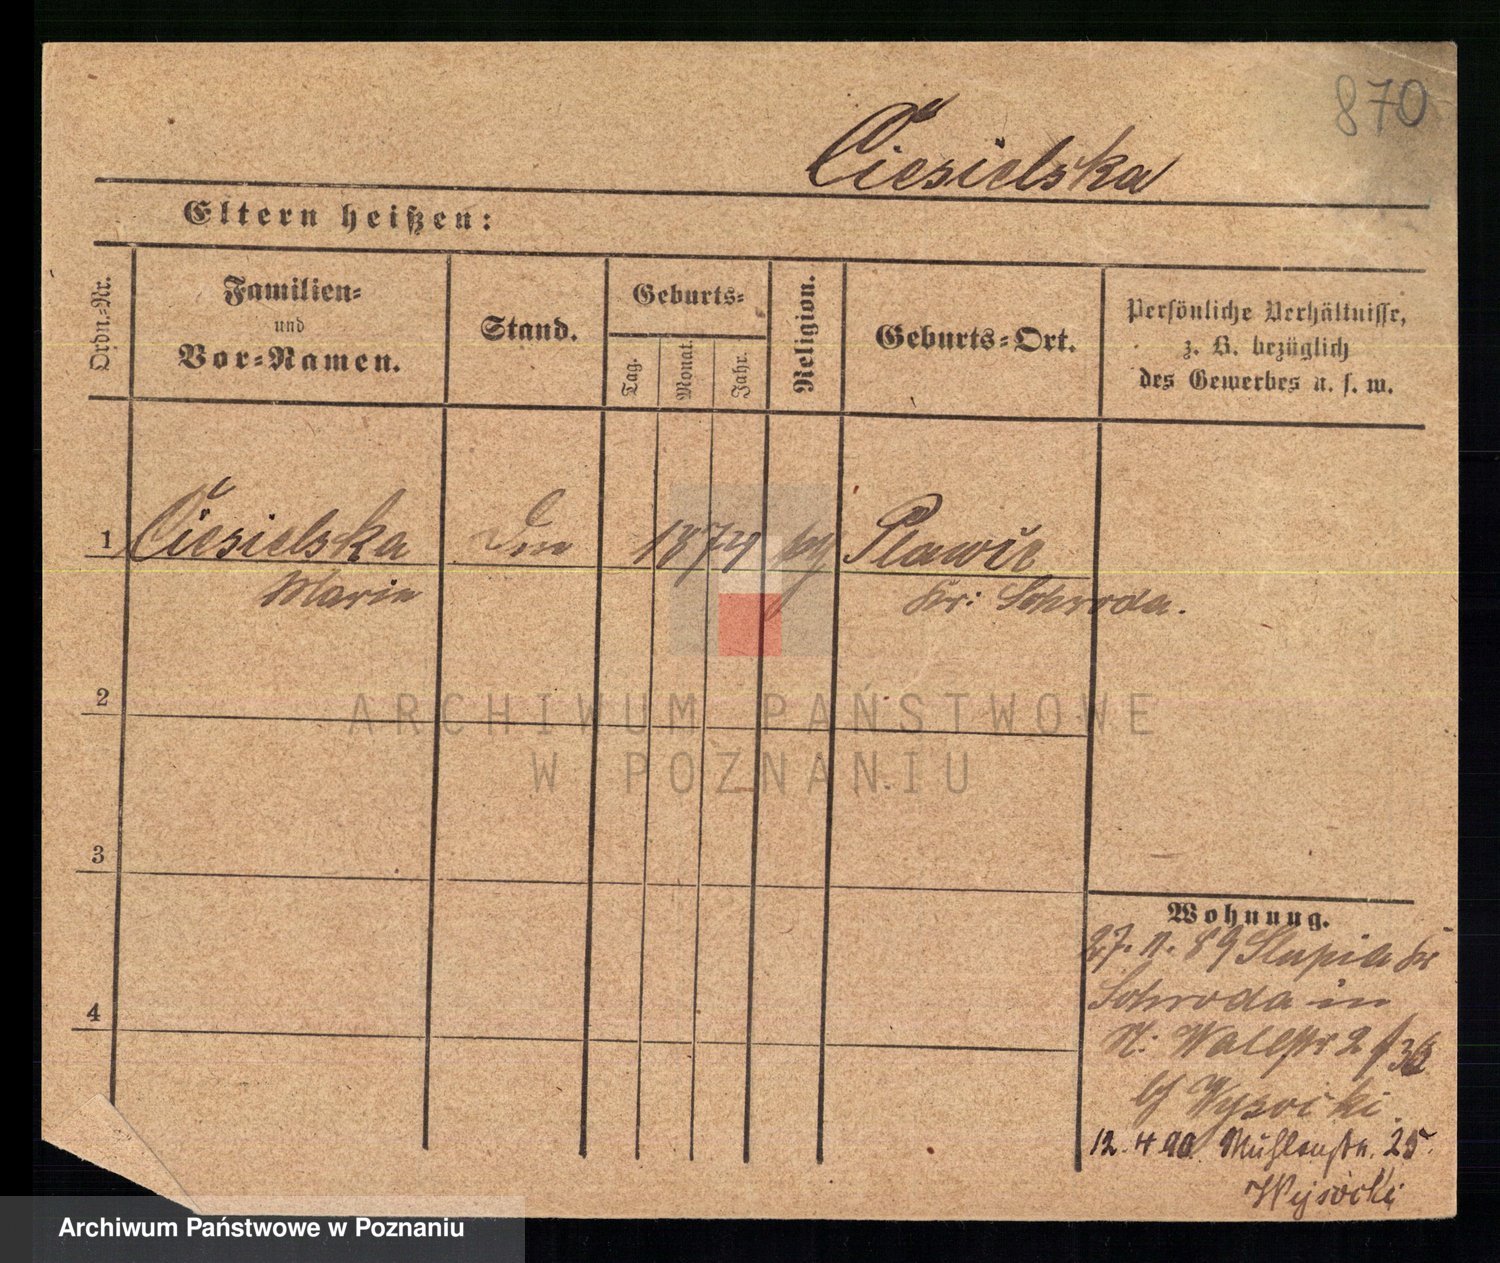 870
Ciesielska
Eltern heißen:
Ordn.-Nr.
Familien-
und
Vor-Namen.
Stand.
Geburts-
Tag.
Monat.
Jahr.
Religion.
Geburts-Ort.
Persönliche Verhältnisse,
z. B. bezüglich
des Gewerbes u. s. w.
1 Ciesielska 1874 Plawce
Marie Kr: Schroda.
2
3
4
ARCHIWUM PAŃSTWOWE
W POZNANIU
Wohnung.
27. 11. 89 Slupia Kr
Schroda in
Wallstr 2
Wysocki
12. 4 90. Mühlenstr. 25.
Wysocki
Archiwum Państwowe w Poznaniu